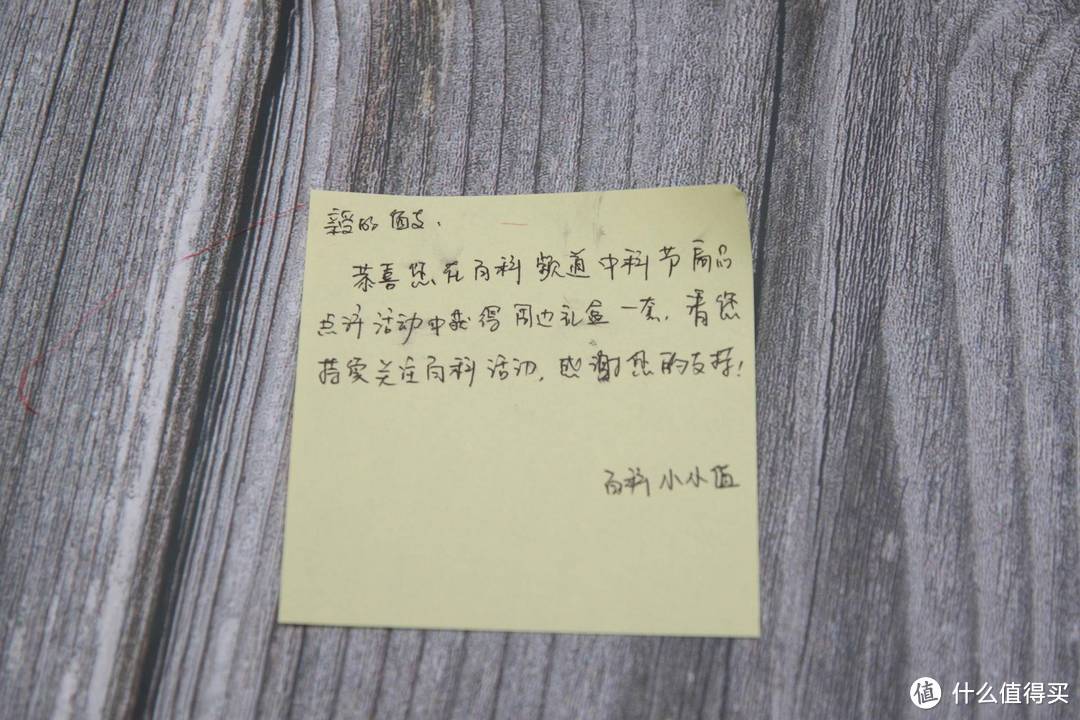 亲爱的 值友，
恭喜您在百科频道中科节商品
点评活动中获得周边礼盒一套，看您
持爱关注百科活动，感谢您的支持！
百科小小值
值 什么值得买